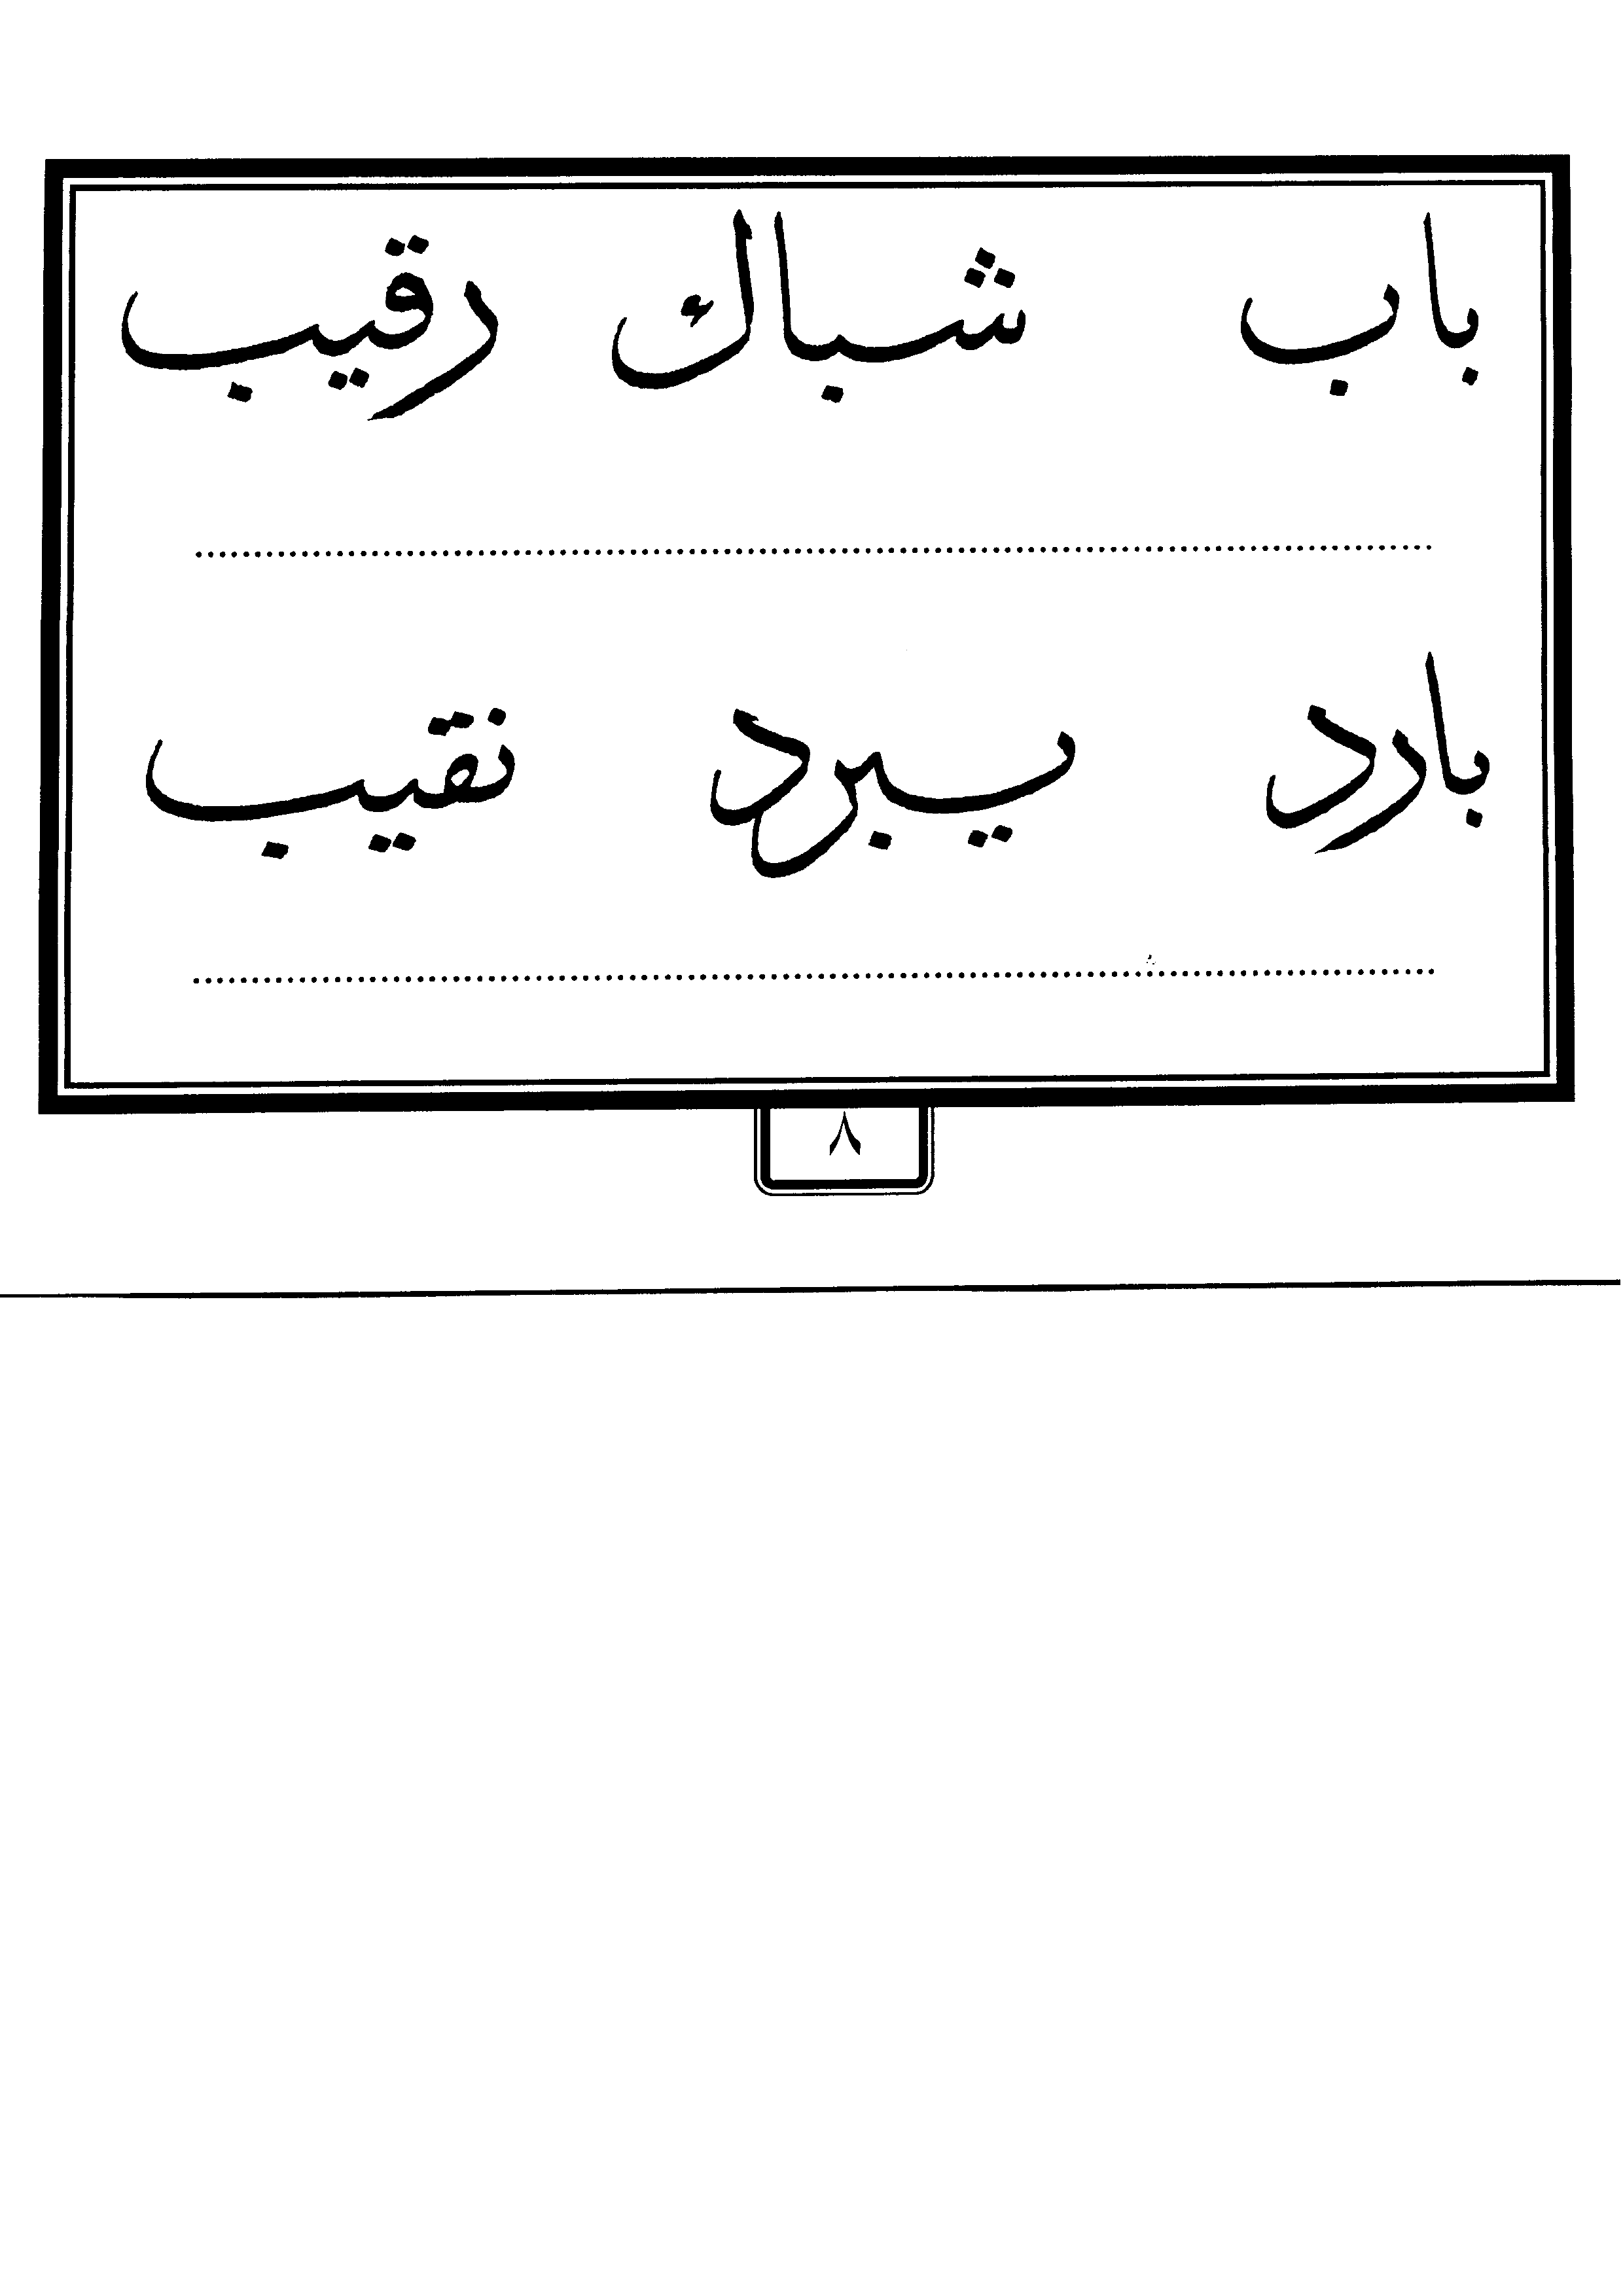 باب شباك رقيب
بارد يبرد نقيب
٨